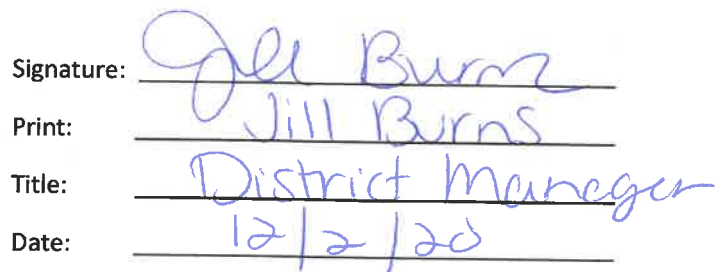 Signature: Jill Burns
Print: Jill Burns
Title: District Manager
Date: 12/2/20